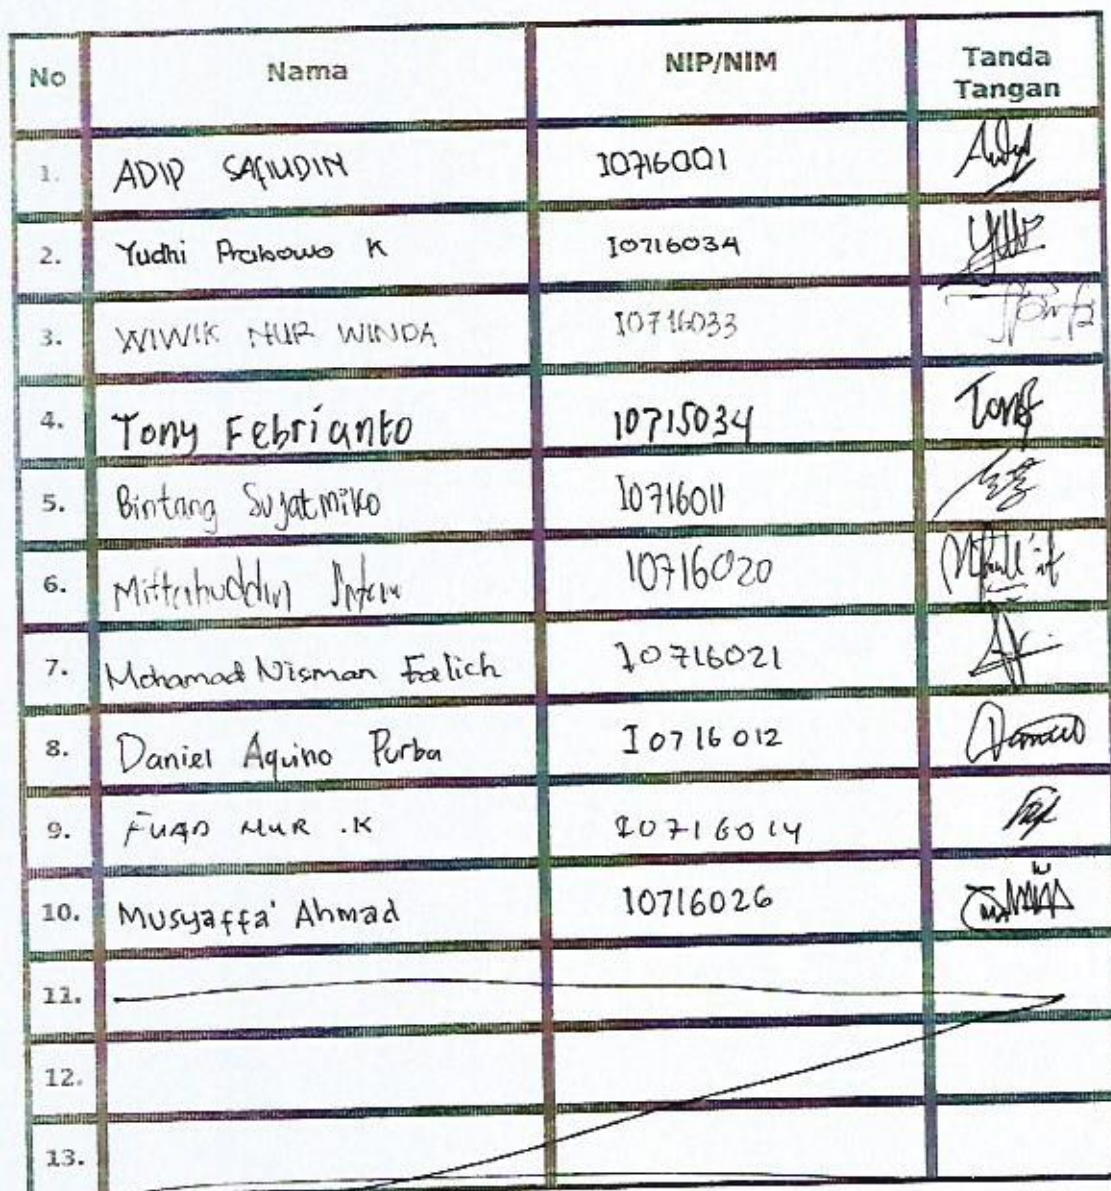 No Nama NIP/NIM Tanda Tangan
1. ADIP SAFIUDIN I0716001
2. Yudhi Prabowo K I0716034
3. WIWIK NUR WINDA I0716033
4. Tony Febrianto I0715034 Tony
5. Bintang Sujatmiko I0716011
6. Miftahuddin I0716020
7. Mohamad Nisman Faelich I0716021
8. Daniel Aquino Purba I0716012 Daniel
9. FUAD NUR .K I0716014
10. Musyaffa' Ahmad I0716026
11.
12.
13.